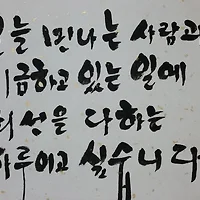 오늘 만나는 사람과
지금하고 있는 일에
최선을 다하는
하루이고 싶습니다